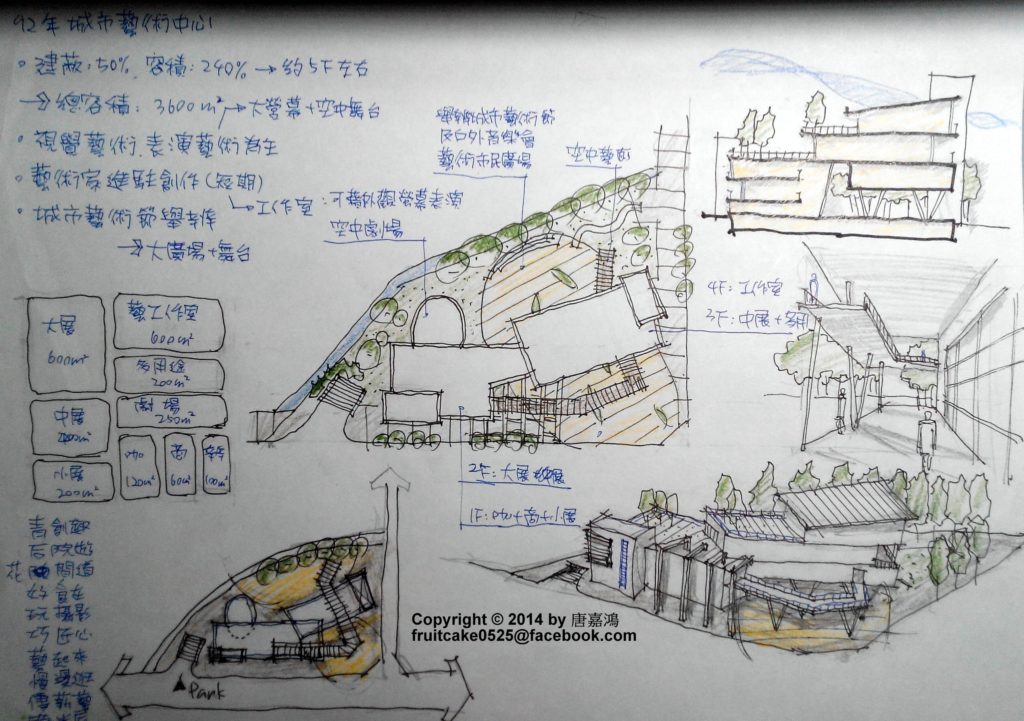 92年城市藝術中心
• 建蔽:50%, 容積:240% → 約5F左右
→ 總容積: 3600m² → 大營幕+空中舞台
• 視覺藝術、表演藝術為主
• 藝術家進駐創作(短期)
工作室:可藉外觀螢幕表演
• 城市藝術節舉辦
→ 大廣場+舞台
舉辦城市藝術節
及戶外音樂會
藝術市民廣場
空中藝廊
空中劇場
4F: 工作室
3F: 中展+多用
2F: 大展
1F: 咖+商+小展
大展
600m²
藝工作室
600m²
多用途
200m²
中展
劇場
250m²
小展
200m²
咖
120m²
商
60m²
100m²
好自在
玩攝影
巧匠心
藝起來
慢漫遊
傳薪藝
Park
Copyright © 2014 by 唐嘉鴻
fruitcake0525@facebook.com